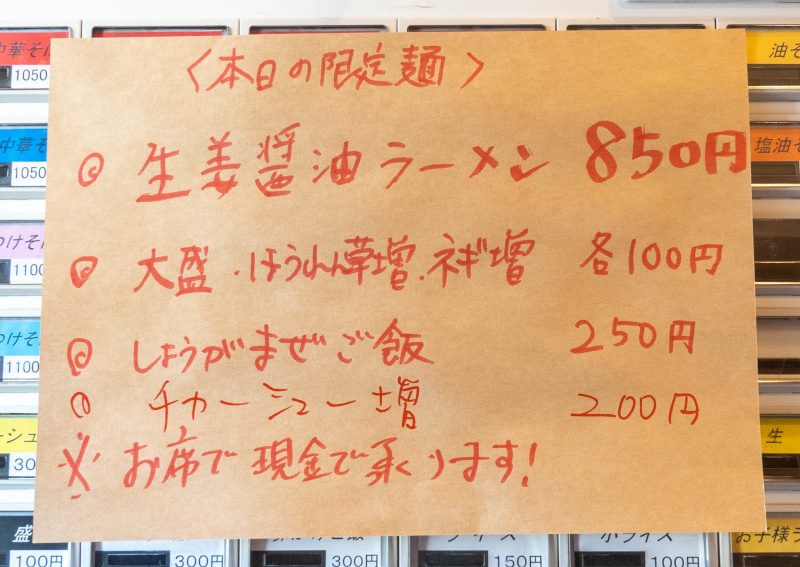 <本日の限定麺>
◎ 生姜醤油ラーメン 850円
◎ 大盛・ほうれん草増・ネギ増 各100円
◎ しょうがまぜご飯 250円
○ チャーシュー増 200円
※ お席で現金で承ります!
中華そ
1050
中華そ
1050
つけそ
1100
つけそ
1100
ーシュ
30
盛
100円
300円
300円
150円
小ライス
100円
油そ
塩油そ
生
お子様ラ